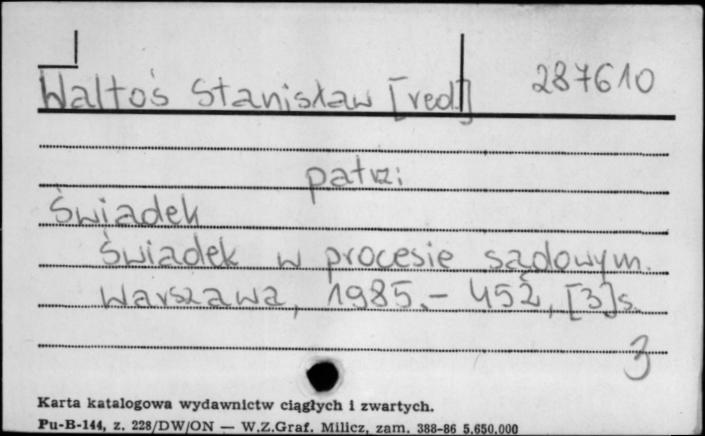 Waltoś Stanisław [red.] 287610
patrz:
Świadek
Świadek w procesie sądowym.
Warszawa, 1985.- 452, [3]s.
3
Karta katalogowa wydawnictw ciągłych i zwartych.
Pu-B-144, z. 228/DW/ON — W.Z.Graf. Milicz, zam. 388-86 5.650.000